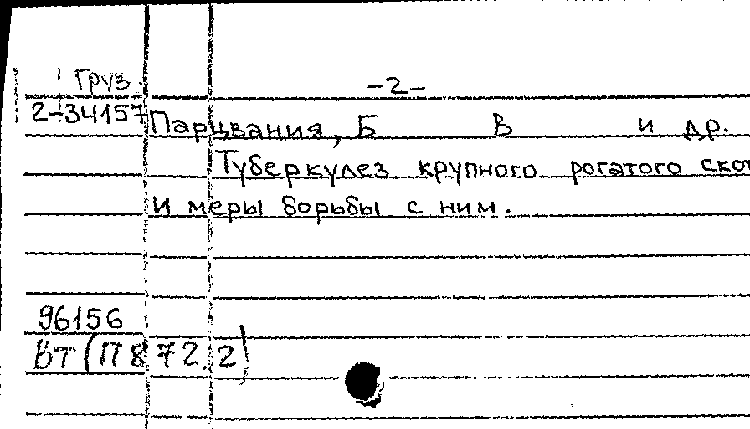 Груз.
-2-
2-34157
Парцвания, Б В и др.
Туберкулез крупного рогатого скот
и меры борьбы с ним.
96156
Вт (П872.2)